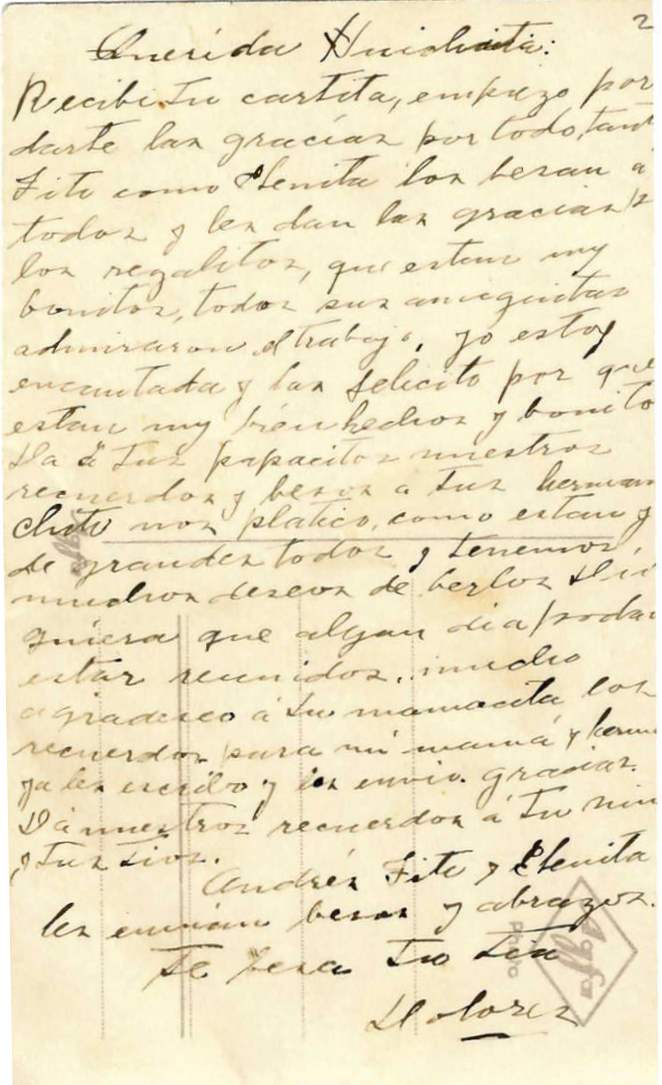 2
Querida
Recibi tu cartita, empiezo por
darte las gracias por todo, tant
Fito como Elenita los besan a
todos y les dan las gracias p
los regalitos, que estan my
bonitos, todos sus amiguitas
admiraron el trabajo, yo estoy
encantada y las felicito por que
estan my bien hechos y bonito
Da á tus papacitos nuestros
recuerdos y besos a tus herman
Chito nos platico, como estan y
de grandes todos y tenemos
muchos deseos de berlos Di
quiera que algun dia podam
estar reunidos, mucho
agradesco á tu mamacita los
recuerdos para mi mamá y herm
ya les escribo y les envio gracias.
Dá nuestros recuerdos á tu nin
y tus tios.
Andrés Fito y Elenita
les envian besos y abrazos.
Te besa tu tia
Dolores
Agfa
Photo